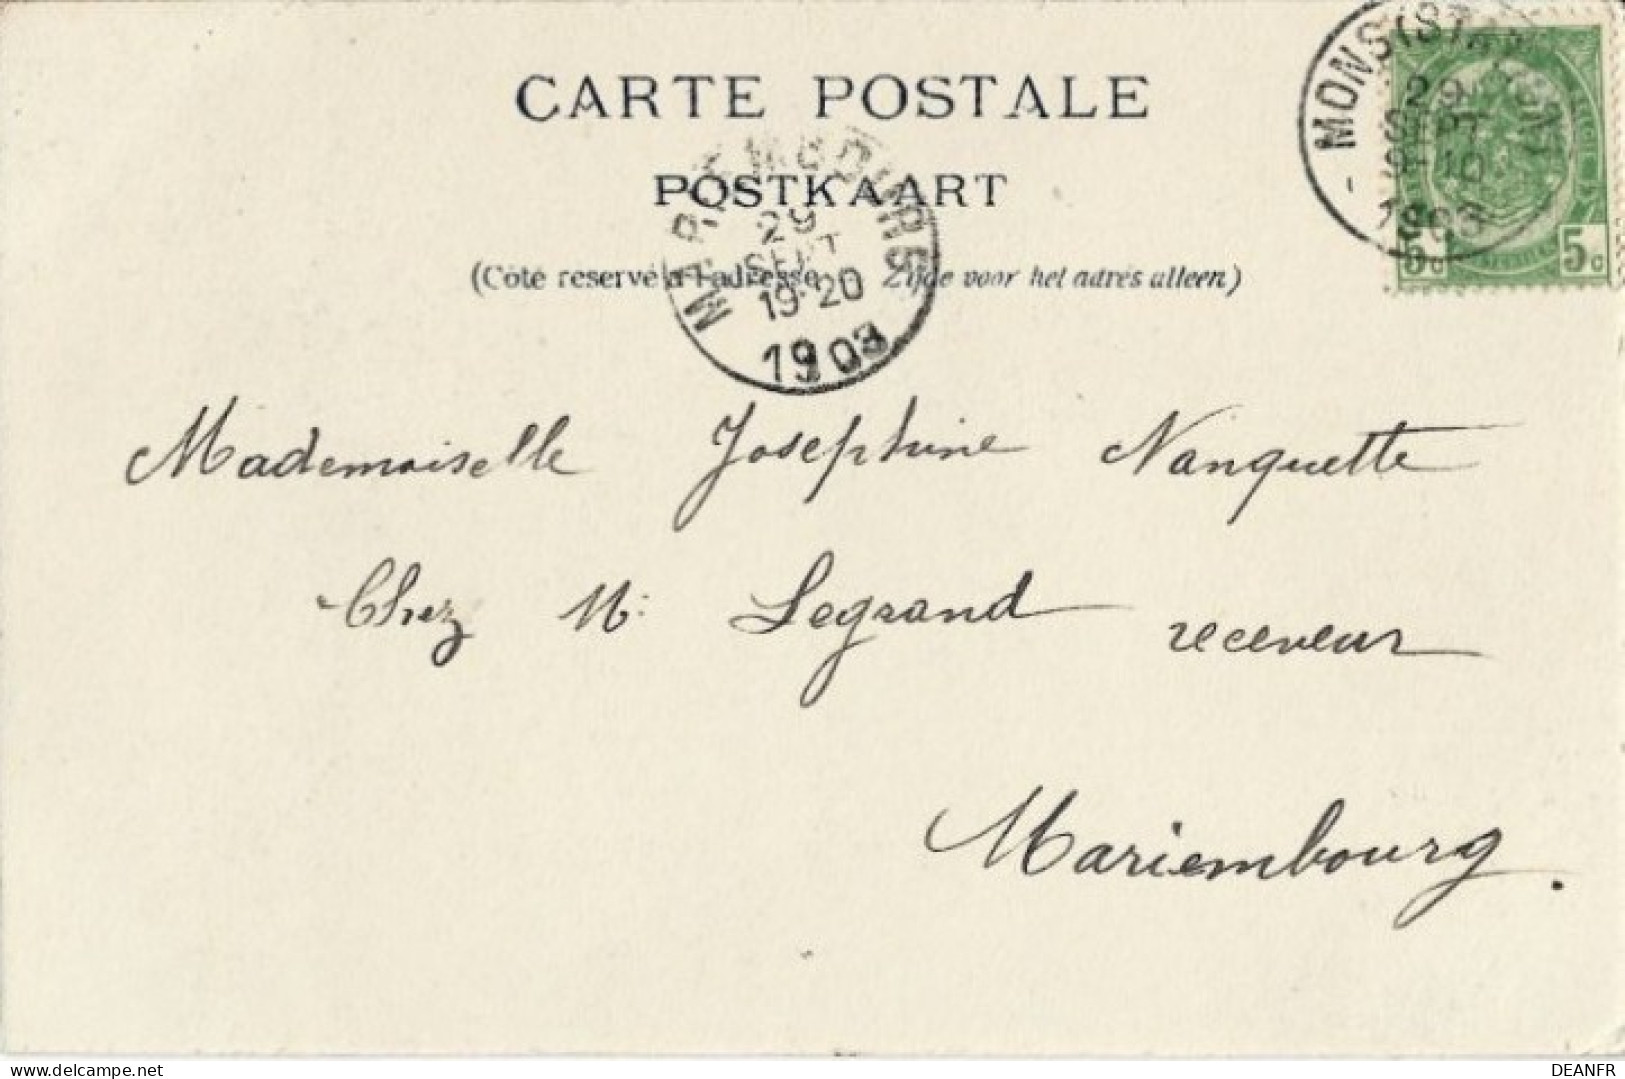 CARTE POSTALE
POSTKAART
(Côté réservé à l'adresse Zijde voor het adres alleen)
MONS (STATION)
29
SEPT
10
1903
5c 5c
MARIEMBOURG
29
SEPT
19-20
1903
Mademoiselle Josephine Nanquette
Chez Mr Legrand receveur
Mariembourg.
delcampe.net
DEANFR